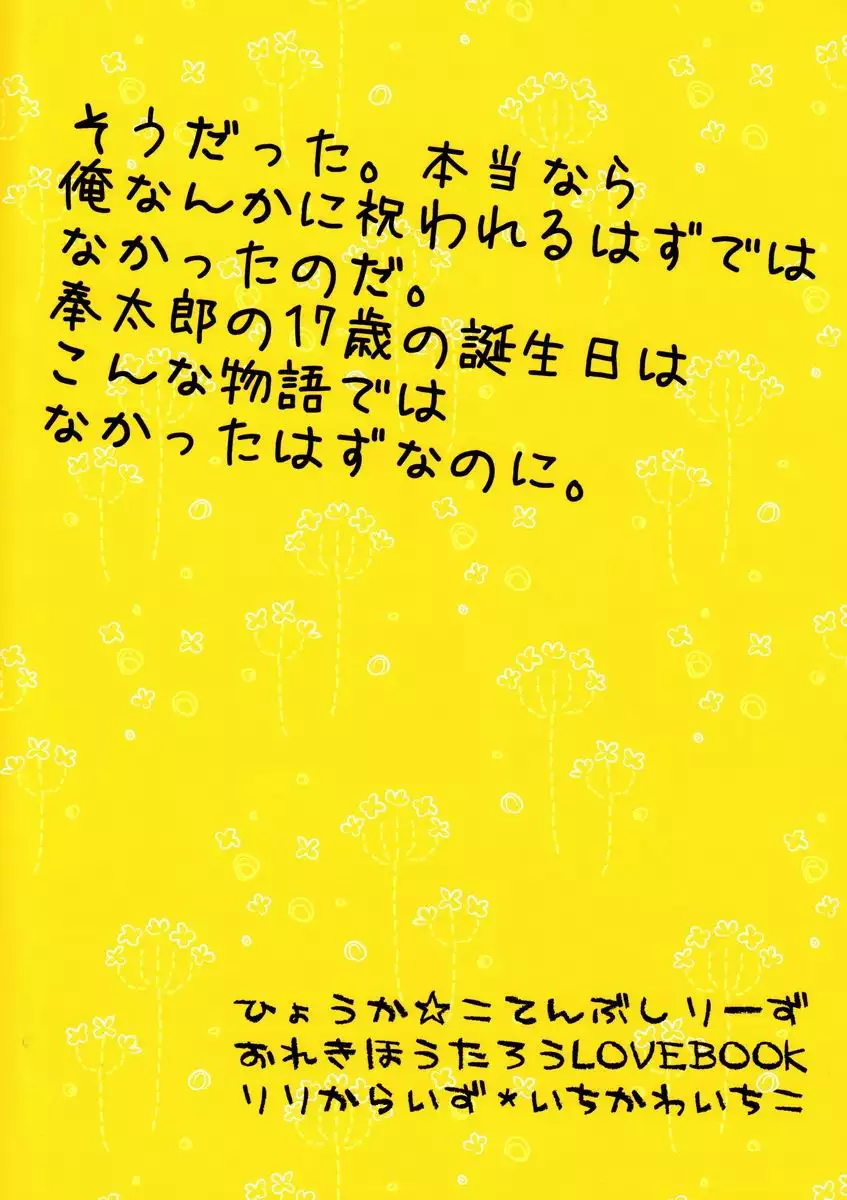 そうだった。本当なら
俺なんかに祝われるはずでは
なかったのだ。
奉太郎の17歳の誕生日は
こんな物語では
なかったはずなのに。
ひょうか☆こてんぶしりーず
おれきほうたろうLOVEBOOK
リリからいず*いちかわいちこ